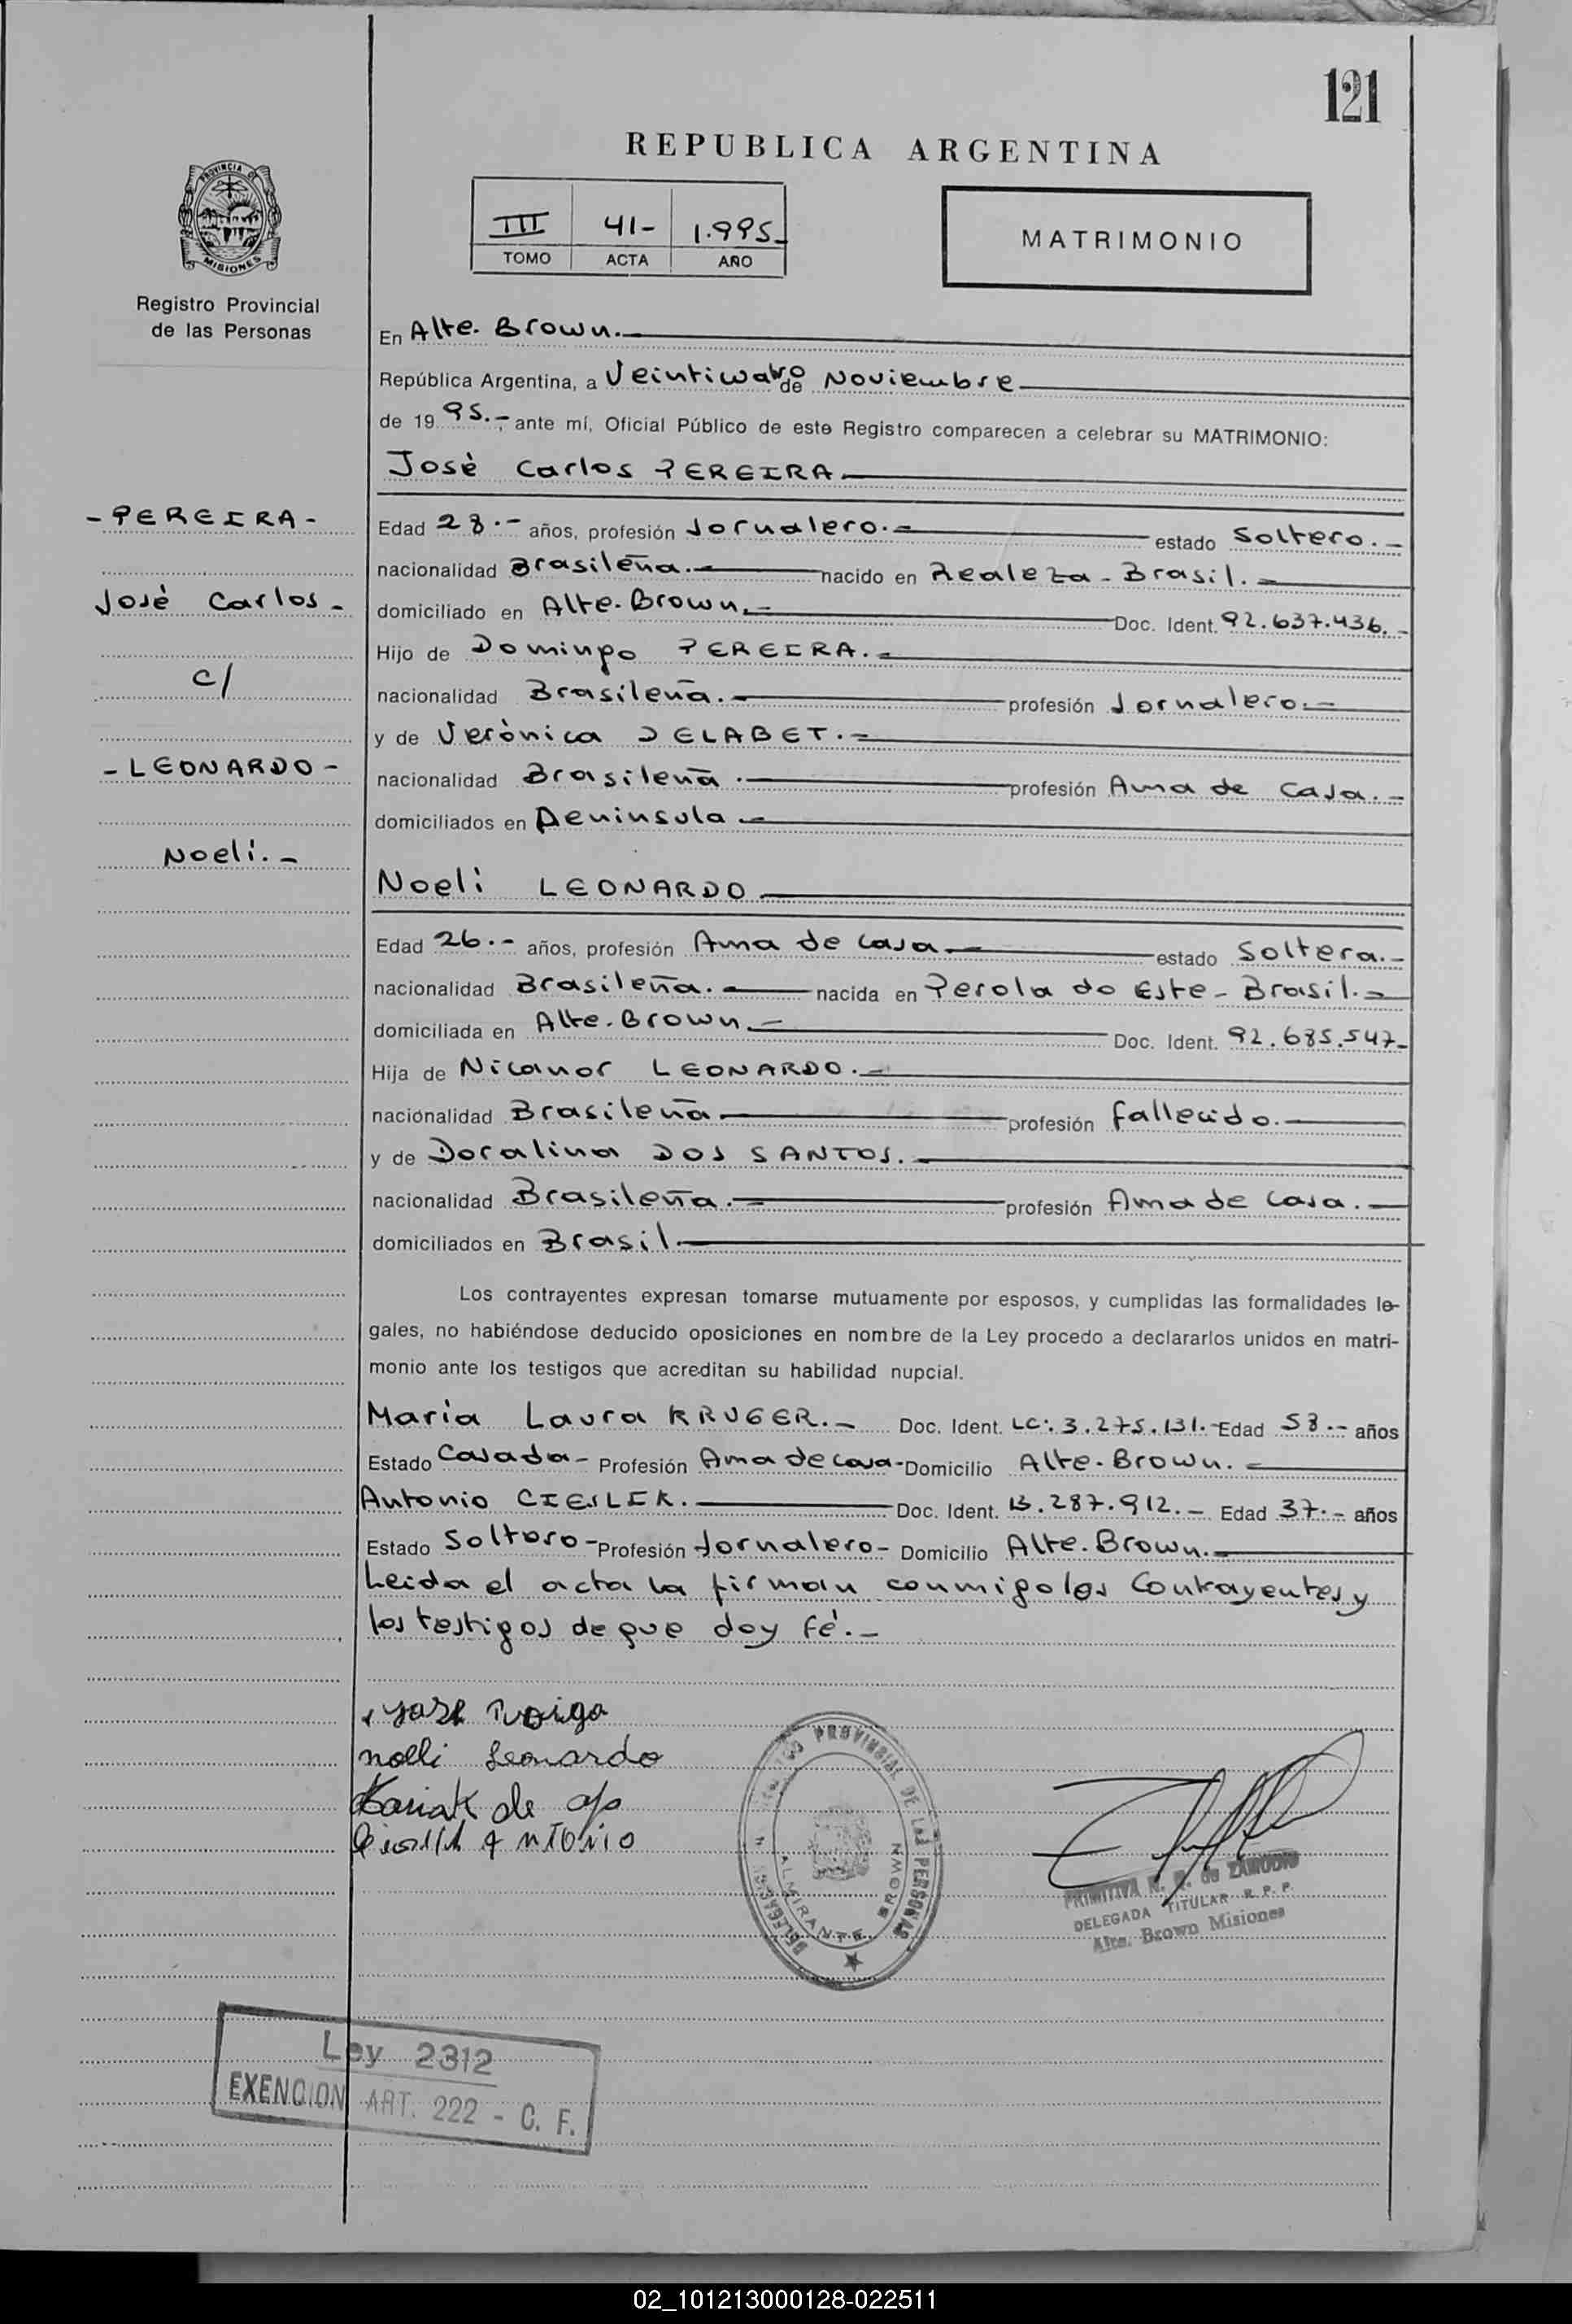 121
REPUBLICA ARGENTINA
III 41- 1.995-
TOMO ACTA AÑO
MATRIMONIO
PROVINCIA DE MISIONES
Registro Provincial
de las Personas
En Alte. Brown.-
República Argentina, a Veinticuatro de Noviembre
de 1995.-, ante mí, Oficial Público de este Registro comparecen a celebrar su MATRIMONIO:
José Carlos PEREIRA
-PEREIRA-
José Carlos-
c/
-LEONARDO-
Noeli.-
Edad 28.- años, profesión Jornalero.- estado Soltero.-
nacionalidad Brasileña.- nacido en Realeza-Brasil.-
domiciliado en Alte. Brown.- Doc. Ident. 92.637.436.-
Hijo de Domingo PEREIRA.-
nacionalidad Brasileña.- profesión Jornalero.-
y de Verónica DELABET.-
nacionalidad Brasileña.- profesión Ama de Casa.-
domiciliados en Península.-
Noeli LEONARDO
Edad 26.- años, profesión Ama de Casa.- estado Soltera.-
nacionalidad Brasileña.- nacida en Perola do Este-Brasil.-
domiciliada en Alte. Brown.- Doc. Ident. 92.685.547-
Hija de Nicanor LEONARDO.-
nacionalidad Brasileña profesión fallecido.
y de Doralina DOS SANTOS.-
nacionalidad Brasileña.- profesión Ama de Casa.-
domiciliados en Brasil.
Los contrayentes expresan tomarse mutuamente por esposos, y cumplidas las formalidades le-
gales, no habiéndose deducido oposiciones en nombre de la Ley procedo a declararlos unidos en matri-
monio ante los testigos que acreditan su habilidad nupcial.
Maria Laura KRUGER.- Doc. Ident. LC: 3.275.131.- Edad 58.- años
Estado Casada- Profesión Ama de Casa- Domicilio Alte. Brown.-
Antonio CIESLIK. Doc. Ident. 13.287.912.- Edad 37.- años
Estado Soltero- Profesión Jornalero- Domicilio Alte. Brown.-
Leida el acta la firman conmigo los Contrayentes y
los testigos de que doy fé.-
noeli Leonardo
Antonio
REGISTRO PROVINCIAL DE LAS PERSONAS
DELEGACION
ALMIRANTE BROWN
PRIMITIVA N. de ZAMUDIO
DELEGADA TITULAR R. P. P.
Alte. Brown Misiones
Ley 2312
EXENCION ART. 222 - C. F.
02_101213000128-022511